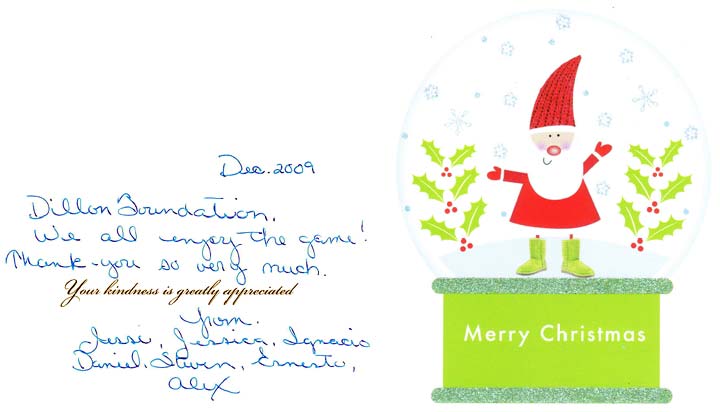 Dec. 2009
Dillon Foundation,
We all enjoy the game!
Thank-you so very much.
Your kindness is greatly appreciated
from.
Jessi, Jessica, Ignacio
Daniel, Steven, Ernesto,
Alex
Merry Christmas